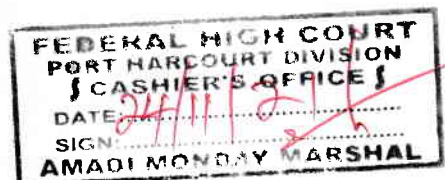 FEDERAL HIGH COURT
PORT HARCOURT DIVISION
CASHIER'S OFFICE
DATE: 24/11/21
SIGN:
AMADI MONDAY MARSHAL